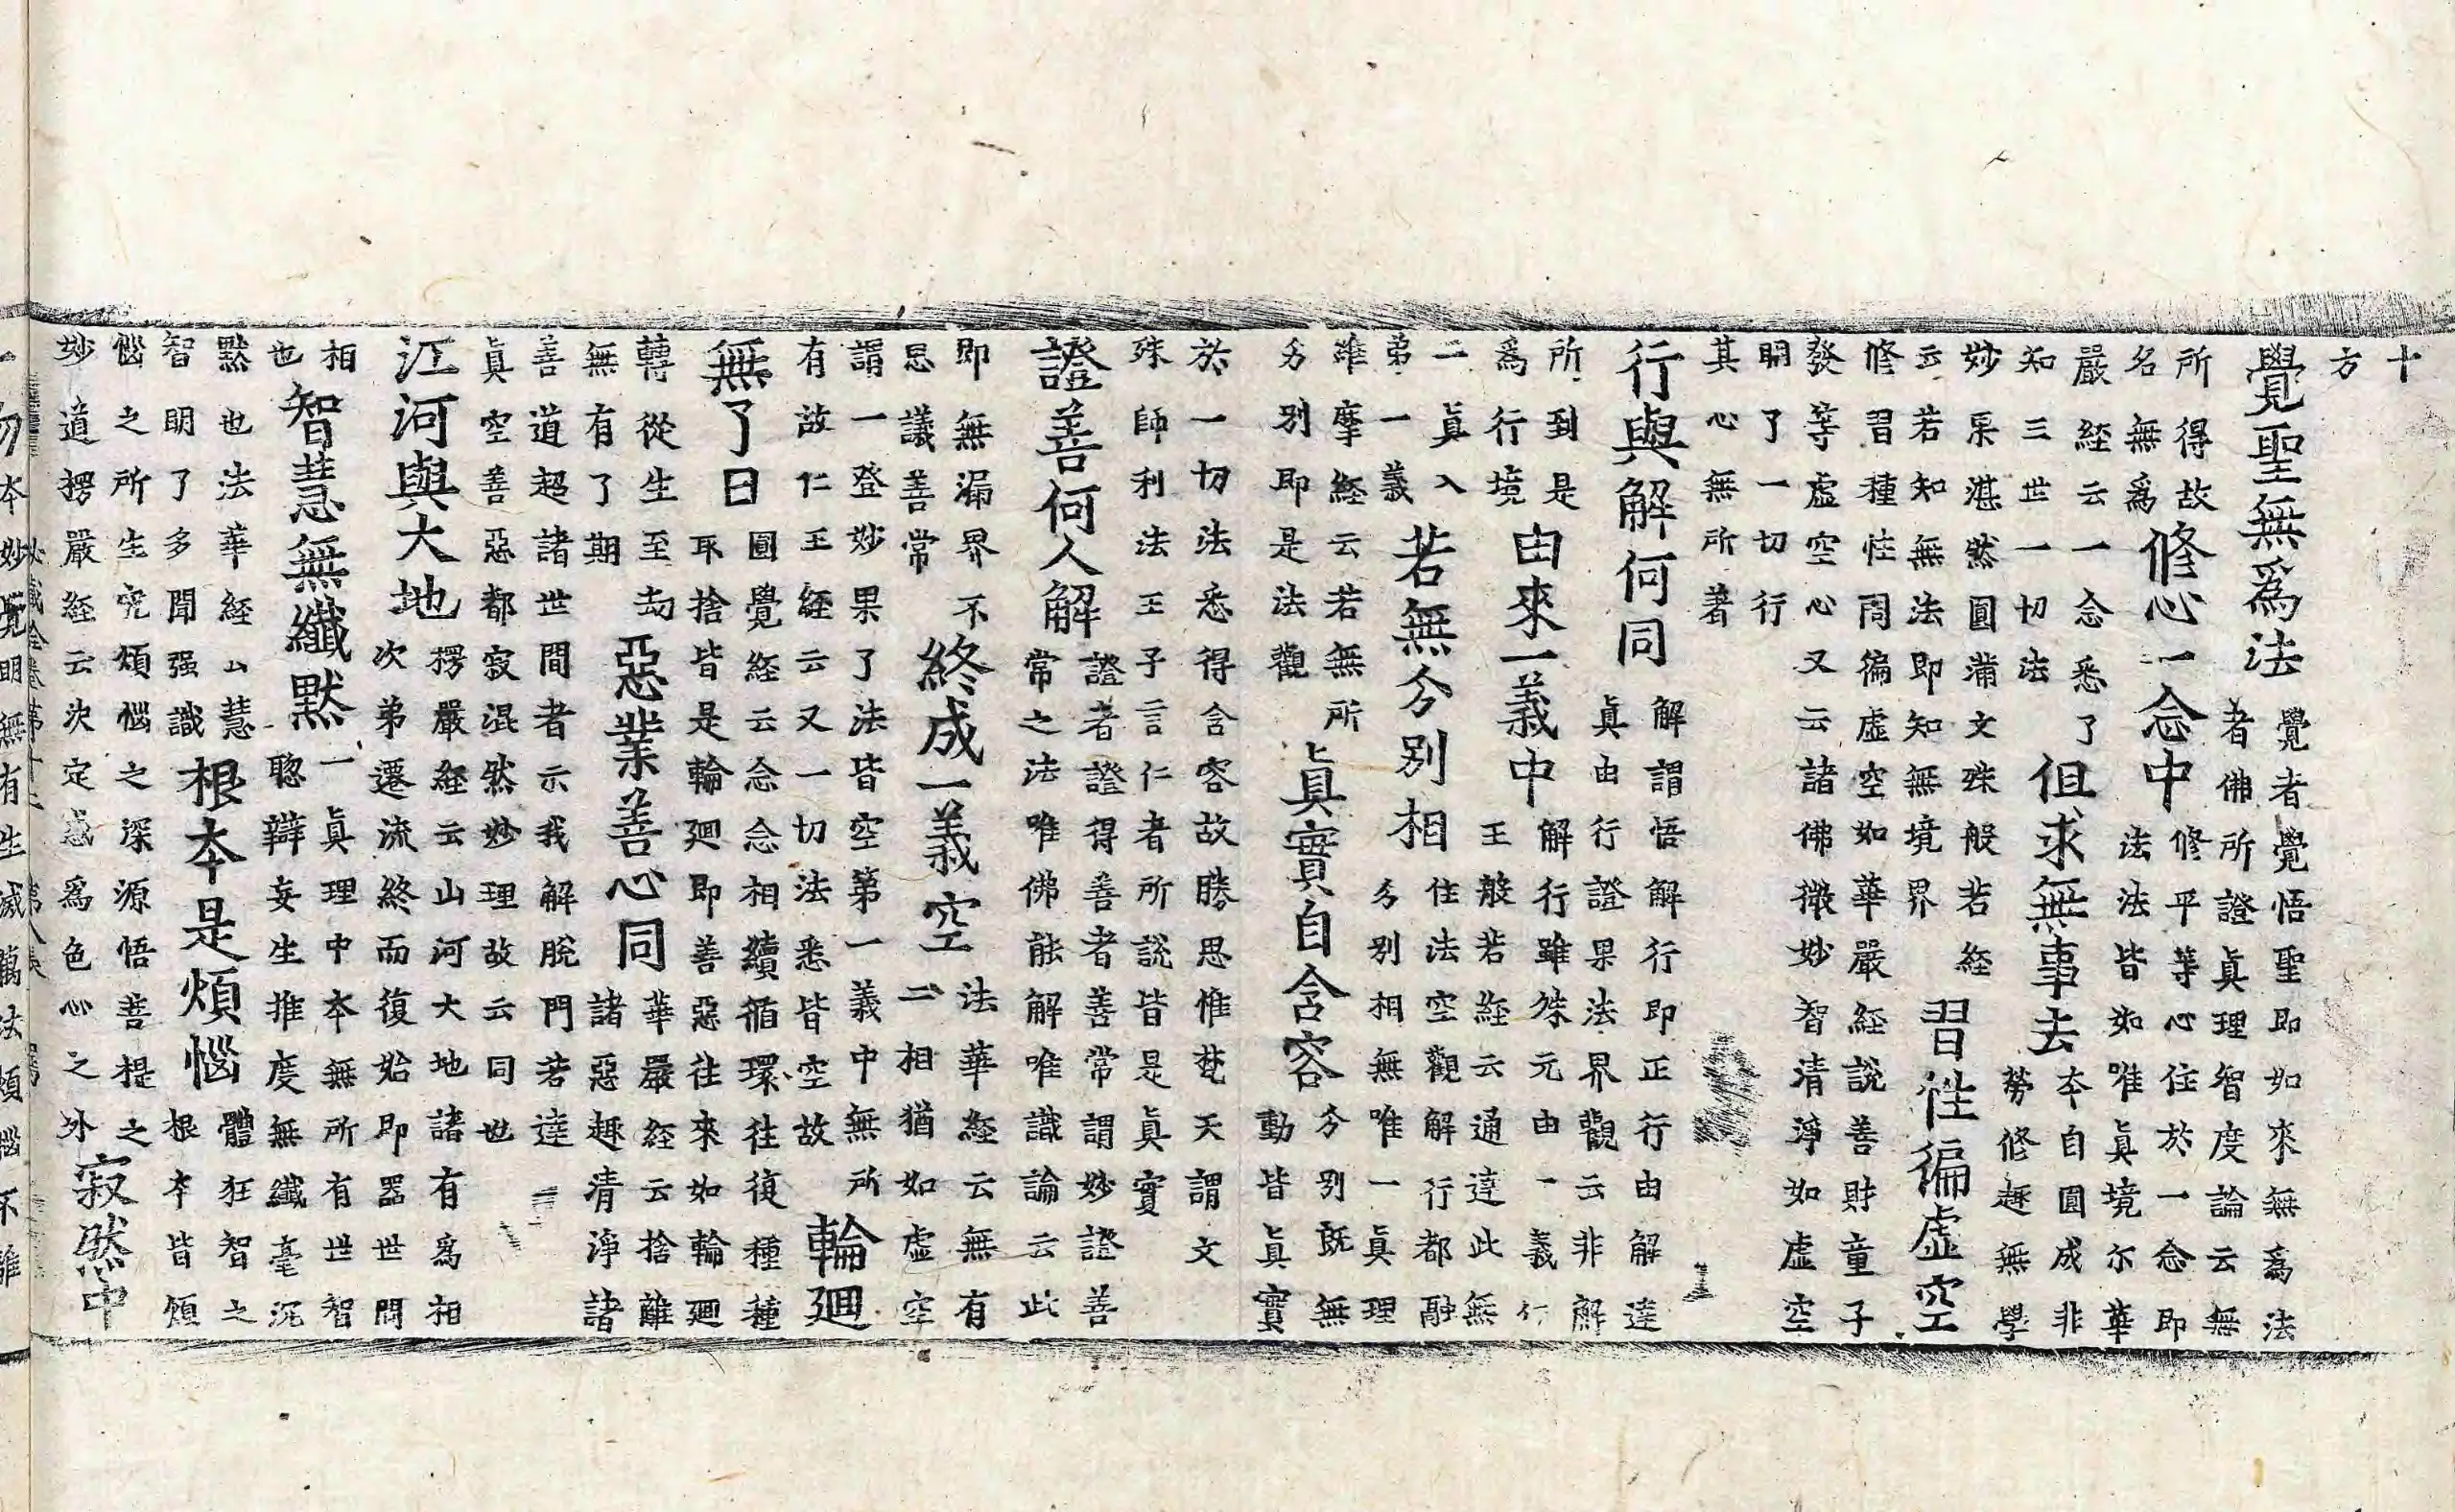 十
方
覺聖無爲法
覺者覺悟聖即如來無爲法
者佛所證眞理智度論云無
所得故
名無爲
修心一念中
修平等心住於一念即
法法皆如唯眞境尔華
嚴経云一念悉了
知三世一切法
但求無事去
本自圓成非
勞修趣無學
妙杲湛然圓滿文殊般若経
云若知無法即知無境界
習性徧虛空
修習種性同徧虛空如華嚴経說善財童子
發等虛空心又云諸佛微妙智清淨如虛空
明了一切行
其心無所著
行與解何同
解謂悟解行即正行由解達
眞由行證果法界觀云非解
所到是
爲行境
由來一義中
解行雖殊元由一義仁
王般若経云通達此無
二眞入
第一義
若無分別相
住法空觀解行都融
分別相無唯一眞理
維摩経云若無所
分別即是法觀
眞實自含容
分別既無
動皆眞實
於一切法悉得含容故勝思惟梵天謂文
殊師利法王子言仁者所說皆是眞實
證善何人解
證者證得善者善常謂妙證善
常之法唯佛能解唯識論云此
即無漏界不
思議善常
終成一義空
法華経云無有
二相猶如虛空
謂一登妙果了法皆空第一義中無所
有故仁王経云又一切法悉皆空故
輪廻
無了日
圓覺経云念念相續循環往復種種
取捨皆是輪廻即善惡往來如輪廻
轉從生至劫
無有了期
惡業善心同
華嚴経云捨離
諸惡趣清淨諸
善道超諸世間者示我解脫門若達
眞空善惡都寂混然妙理故云同也
江河與大地
楞嚴経云山河大地諸有爲相
次第遷流終而復始即器世間
相
也
智慧無纖默
一眞理中本無所有世智
聰辯妄生推度無纖毫沉
默也法華経云慧
智明了多聞强識
根本是煩惱
體狂智之
根本皆煩
惱之所生究煩惱之深源悟菩提之
妙道楞嚴経云決定惑爲色心之外
寂然中